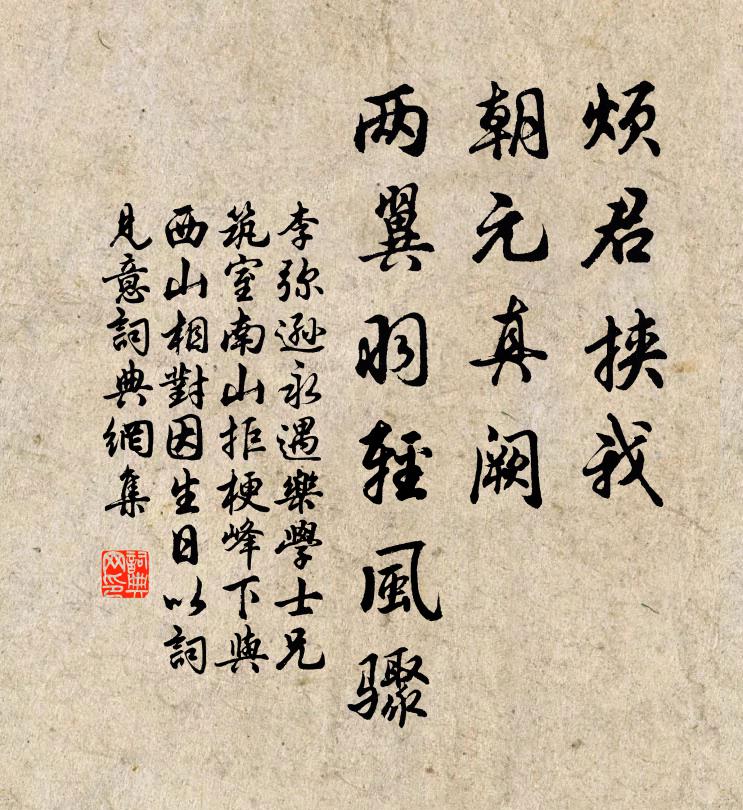 烦君挟我
朝元真阙
两翼羽轻風骤
李弥遜永遇樂學士兄
筑室南山拒梗峰下與
西山相對因生日以詞
見意詞典網集
詞典
网印